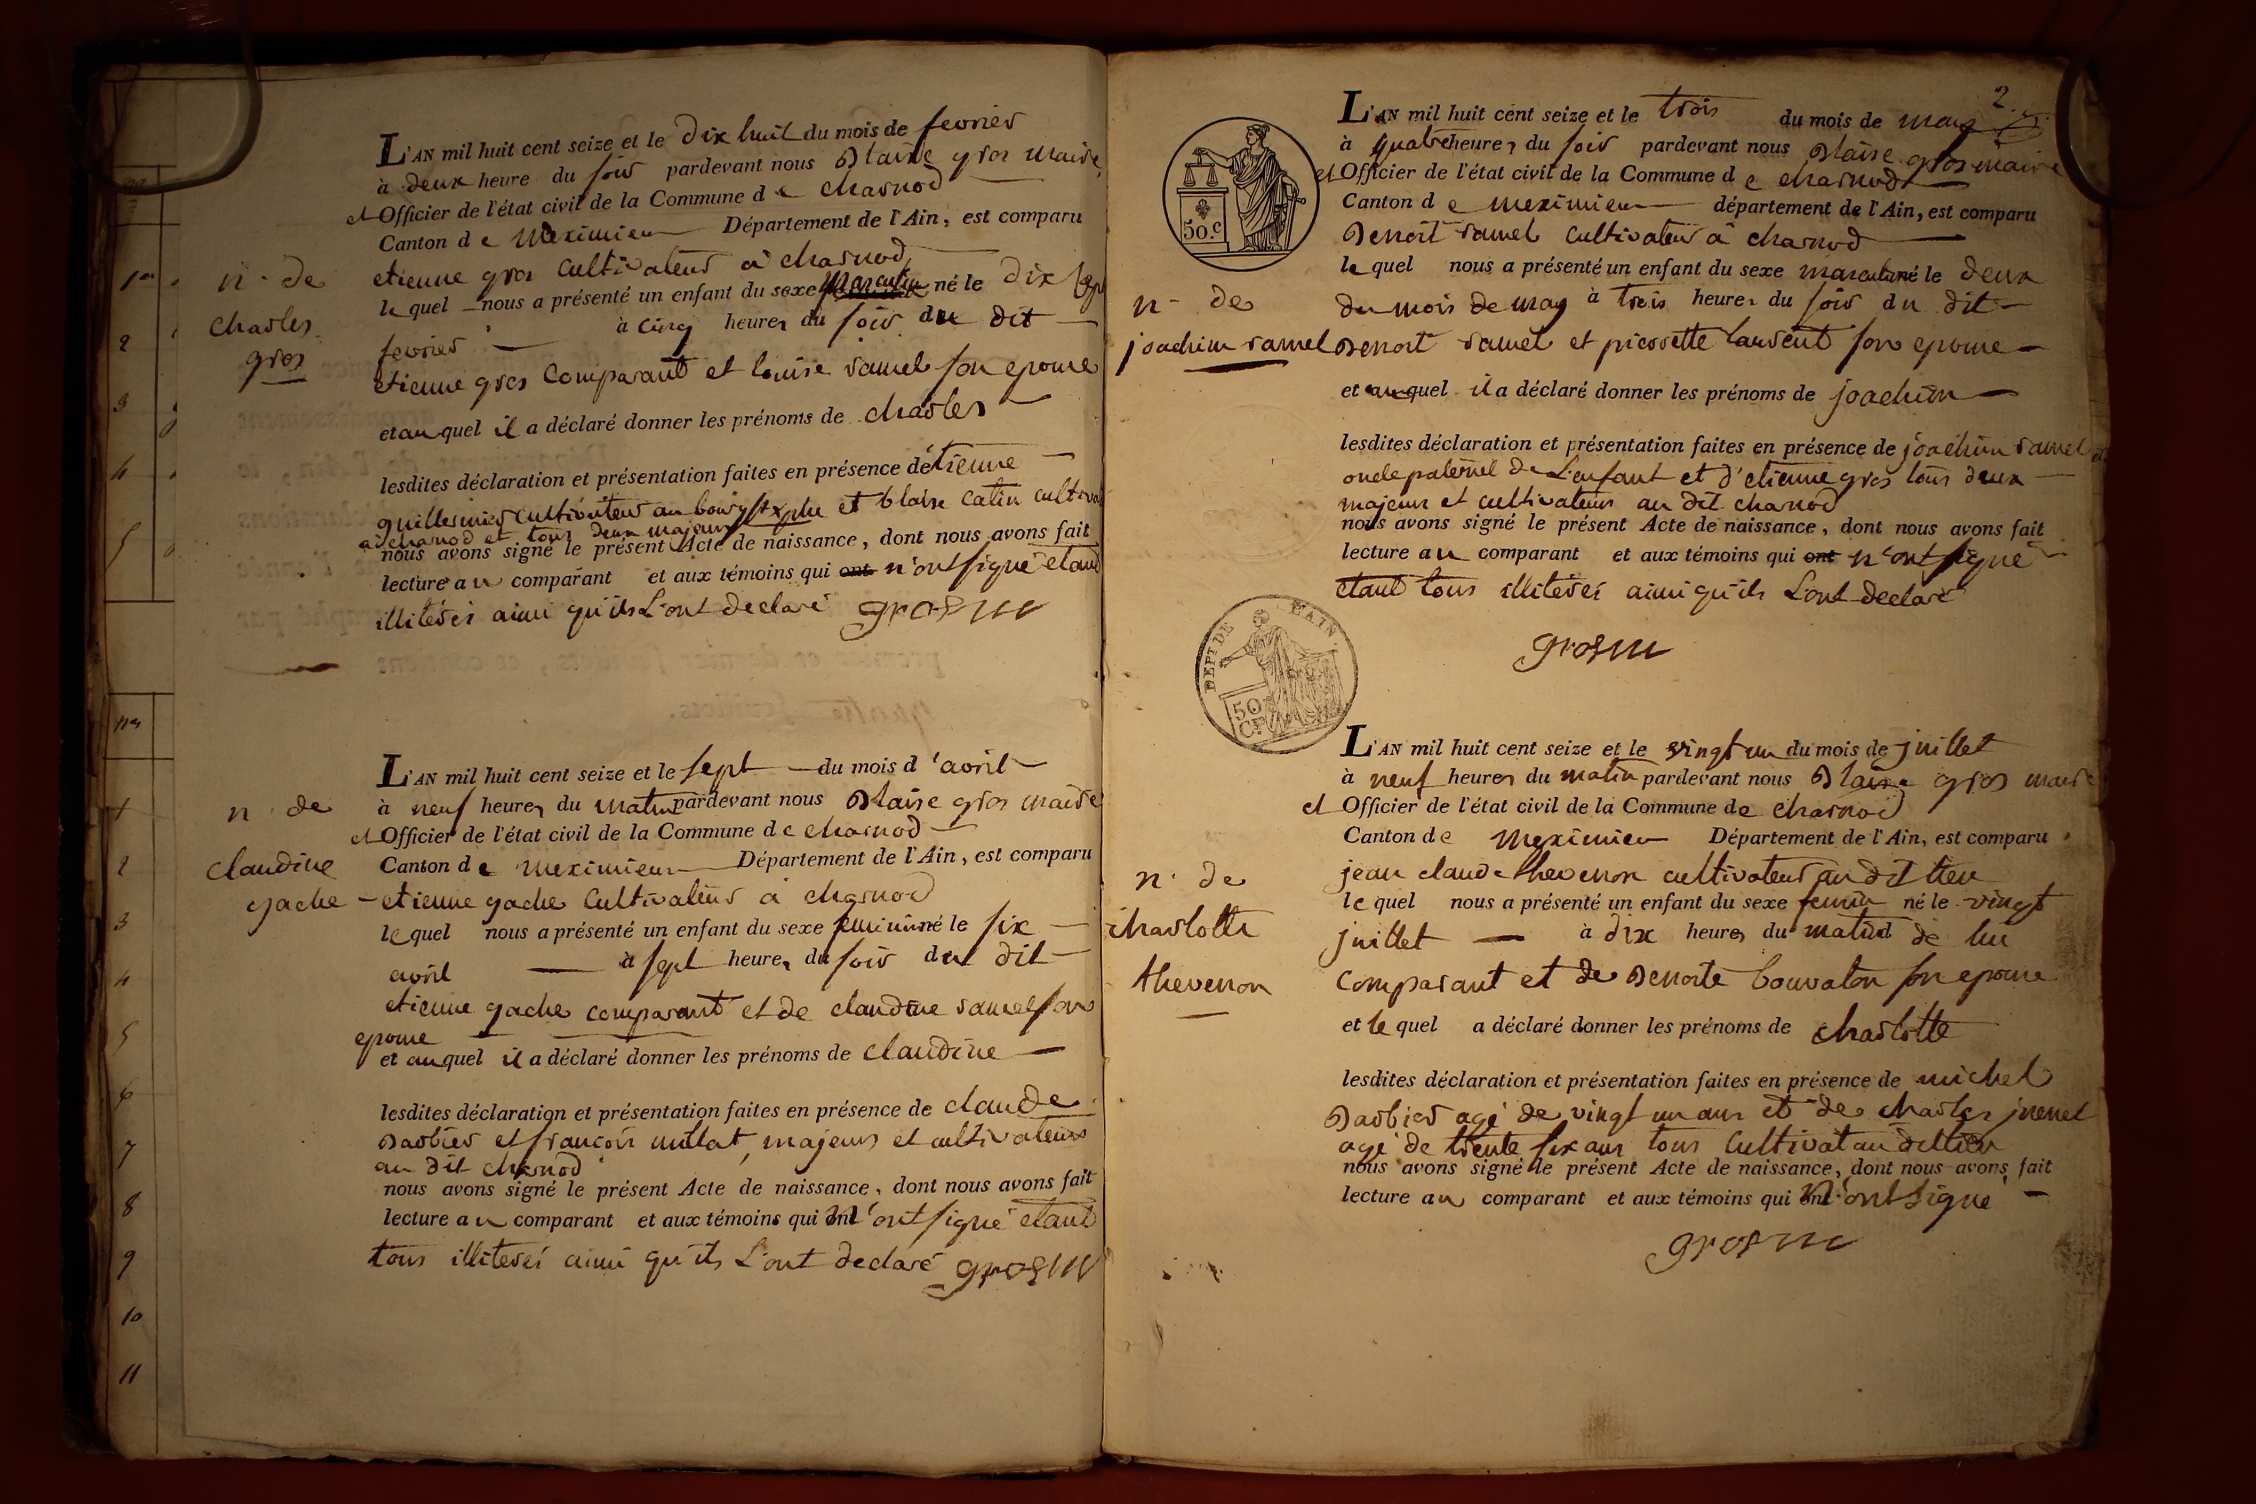 1er
2
3
4
5
1
2
3
4
5
6
7
8
9
10
11
n. de
charles
gros
L'AN mil huit cent seize et le dix huit du mois de fevrier
à deux heure du soir pardevant nous Blaise gros maire
et Officier de l'état civil de la Commune de charnod
Canton de Meximieu Département de l'Ain, est comparu
etienne gros cultivateur à charnod
lequel nous a présenté un enfant du sexe masculin né le dix sept
fevrier à cinq heures du soir du dit
etienne gros comparant et louise ramel son epouse
et auquel il a déclaré donner les prénoms de charles
lesdites déclaration et présentation faites en présence détienne
guillermier cultivateur au bourg st xphe et blaise catin cultivat
a charnod et tous deux majeurs
nous avons signé le présent Acte de naissance, dont nous avons fait
lecture au comparant et aux témoins qui ont n'ont signé etant
illiterés ainsi qu'ils L'ont declaré gros m
n. de
claudine
gache
L'AN mil huit cent seize et le sept du mois d'avril
à neuf heures du matin pardevant nous Blaise gros maire
et Officier de l'état civil de la Commune de charnod
Canton de Meximieu Département de l'Ain, est comparu
etienne gache cultivateur à charnod
lequel nous a présenté un enfant du sexe feminin né le six
avril à sept heures du soir du dit
etienne gache comparant et de claudine ramel son
epouse
et auquel il a déclaré donner les prénoms de claudine
lesdites déclaration et présentation faites en présence de claude
Barbier et françois millat, majeurs et cultivateurs
au dit charnod
nous avons signé le présent Acte de naissance, dont nous avons fait
lecture au comparant et aux témoins qui n'ont signé etant
tous illiterés ainsi qu'ils L'ont declaré gros m
2.
50.c
n. de
joachim ramel
L'AN mil huit cent seize et le trois du mois de may
à quatre heures du soir pardevant nous Blaise gros maire
et Officier de l'état civil de la Commune de charnod
Canton de meximieu département de l'Ain, est comparu
Benoit ramel cultivateur à charnod
lequel nous a présenté un enfant du sexe masculin né le deux
du mois de may à trois heures du soir du dit
Benoit ramel et pierrette laurent son epouse
et auquel il a déclaré donner les prénoms de joachim
lesdites déclaration et présentation faites en présence de joachim ramel
oncle paternel de L'enfant et d'etienne gros tous deux
majeurs et cultivateurs au dit charnod
nous avons signé le présent Acte de naissance, dont nous avons fait
lecture au comparant et aux témoins qui ont n'ont signé
etant tous illiterés ainsi qu'ils L'ont declaré
gros m
DEPT DE L'AIN.
50
Ces
n. de
charlotte
thevenon
L'AN mil huit cent seize et le vingt un du mois de juillet
à neuf heures du matin pardevant nous Blaise gros maire
et Officier de l'état civil de la Commune de charnod
Canton de Meximieu Département de l'Ain, est comparu
jean claude thevenon cultivateur au dit lieu
lequel nous a présenté un enfant du sexe feminin né le vingt
juillet à dix heures du matin de lui
comparant et de Benoite bouvaton son epouse
et lequel a déclaré donner les prénoms de charlotte
lesdites déclaration et présentation faites en présence de michel
Barbier agé de vingt un ans et de charles
agé de trente six ans tous cultivat au dit lieu
nous avons signé le présent Acte de naissance, dont nous avons fait
lecture au comparant et aux témoins qui n'ont signé
gros m